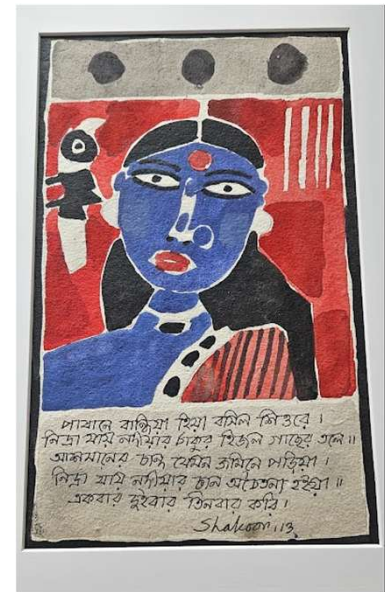 পাষানে বান্ধিয়া হিয়া বসিল শিওরে ।
নিদ্রা যায় নদীয়ার ঠাকুর হিজল গাছের তলে ॥
আশমানের চান্দ যেমন জমিনে পড়িয়া ।
নিদ্রা যায় নদীয়ার চান্দ অচৈতন্য হইয়া ॥
একবার দুইবার তিনবার করি ।
Shakoor. 13